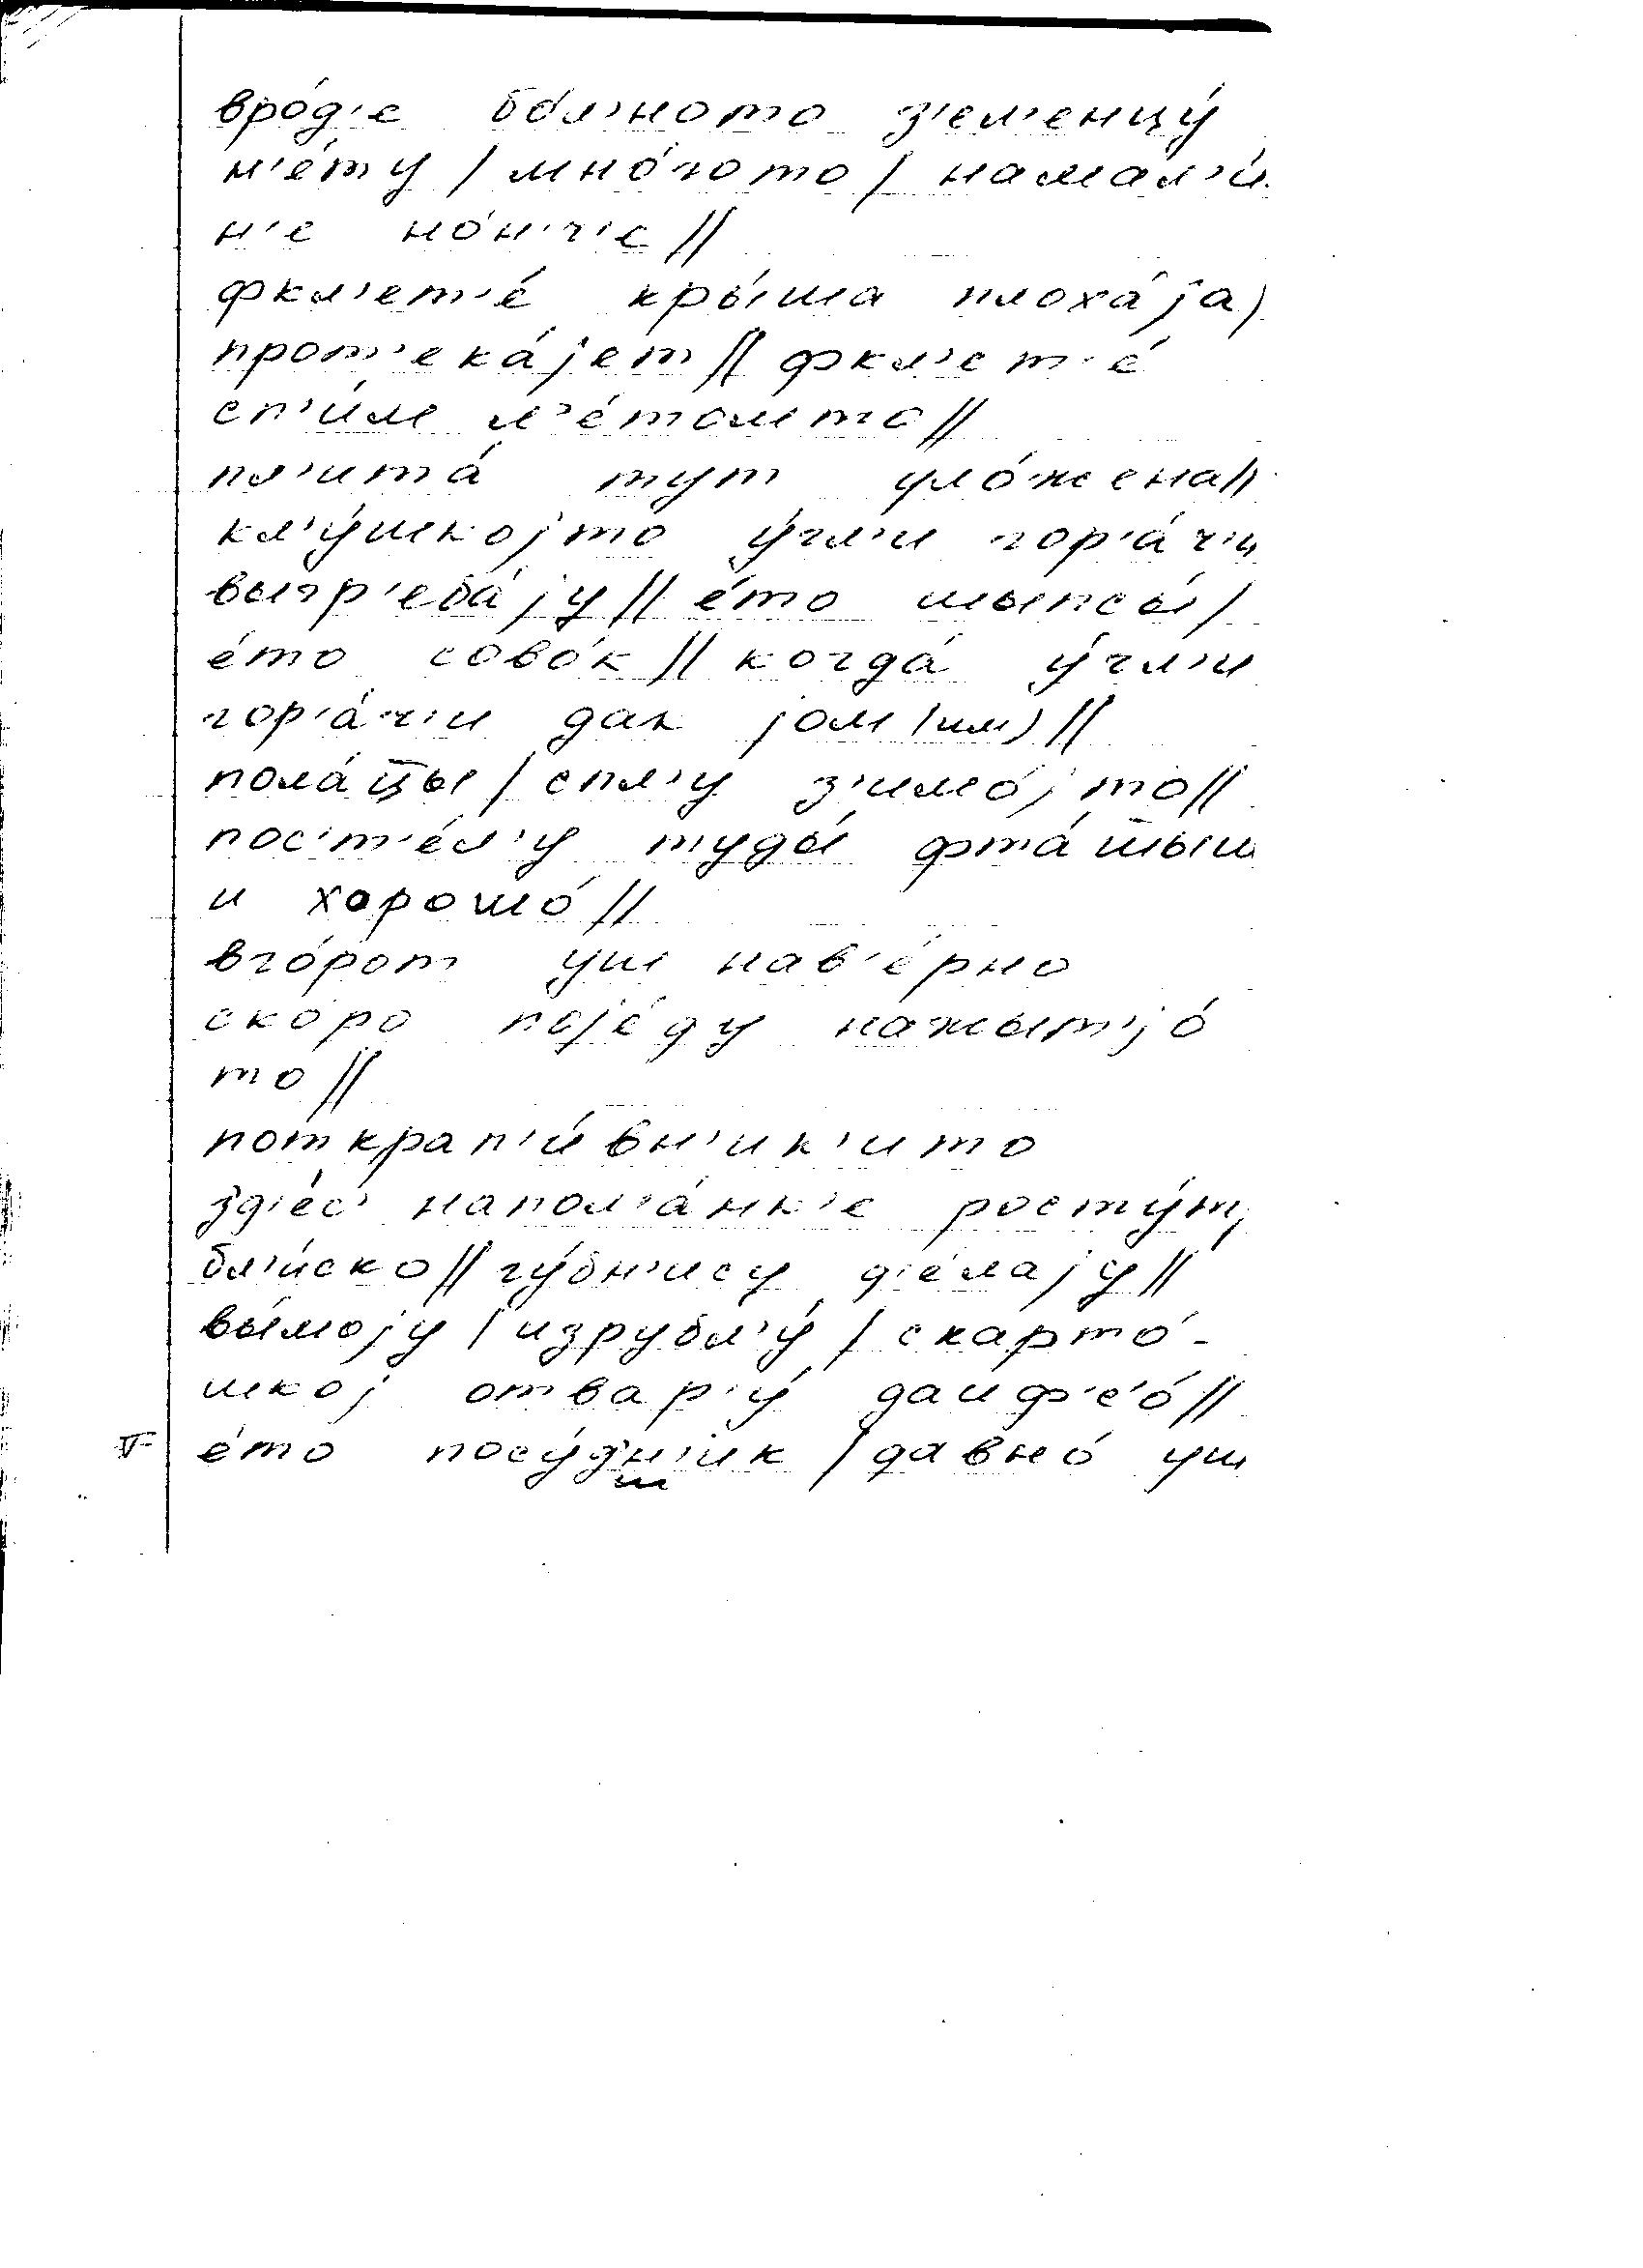 вро́д'е бо́л'ното з'ем'енцу́
н'е́ту / мно́гото / намал'и́
н'е но́н'ч'е //
фкл'ет'е́ кры́ша плоха́jа /
прот'ека́jет // фкл'ет'е́
сп'и́м л'е́томто //
пл'ита́ тут уло́жена //
кл'у́шкоjто у́гл'и гор'а́ч'и
выгр'еба́jу // е́то шыпсы́ /
е́то сово́к // когда́ у́гл'и
гор'а́ч'и дак jом (им) //
пола́цы / спл'у з'имо́jто //
пос'т'е́л'у туды́ фта́шыш
и хорошо́ //
вго́рот уш нав'е́рно
ско́ро поjе́ду нажыт'jо́
то //
поткрап'и́вн'ик'ито
зд'е́с' напол'а́нк'е росту́т /
бл'и́ско // гу́бн'ису д'е́лаjу //
вы́моjу / изрубл'у́ / скарто́-
шкоj отвар'у́ даиф'с'о́ //
V е́то посу́дн'ик / давно́ уш
ш